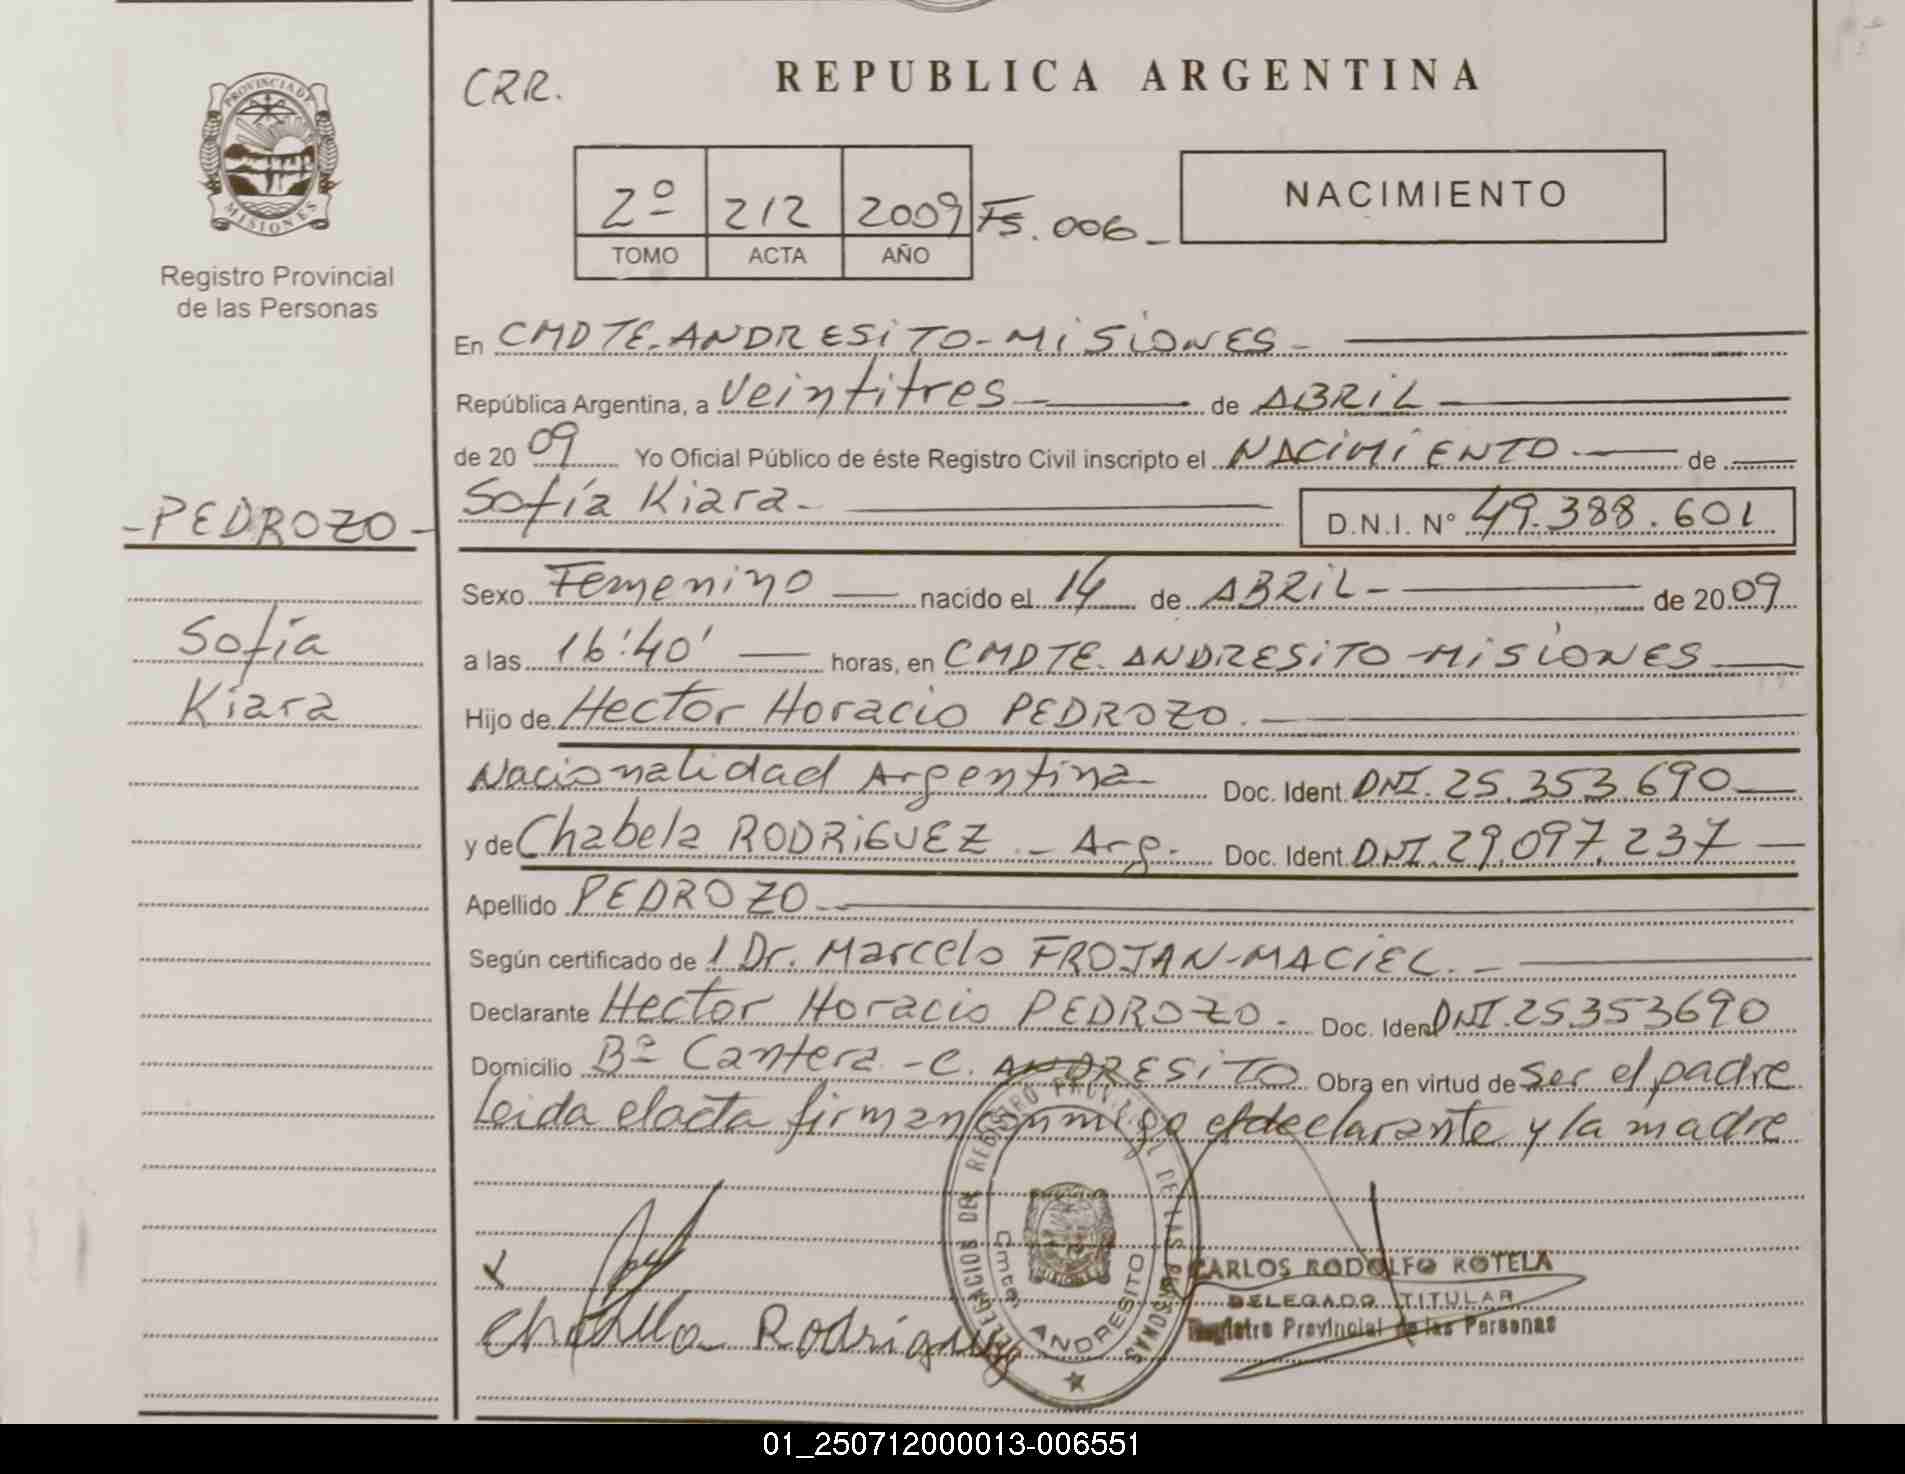 PROVINCIA DE
MISIONES
Registro Provincial
de las Personas
-PEDROZO-
Sofía
Kiara
CRR.
REPUBLICA ARGENTINA
2º 212 2009 Fs. 006_
TOMO ACTA AÑO
NACIMIENTO
En CMDTE. ANDRESITO-MISIONES-
República Argentina, a veintitres de ABRIL
de 2009 Yo Oficial Público de éste Registro Civil inscripto el NACIMIENTO. de
Sofía Kiara- D.N.I. N° 49.388.601
Sexo Femenino nacido el 14 de ABRIL- de 2009
a las 16:40' horas, en CMDTE. ANDRESITO-MISIONES
Hijo de Hector Horacio PEDROZO.
Nacionalidad Argentina- Doc. Ident. DNI. 25.353.690
y de Chabela RODRIGUEZ.- Arg. Doc. Ident. DNI. 29.097.237
Apellido PEDROZO-
Según certificado de 1 Dr. Marcelo FROJAN-MACIEL.-
Declarante Hector Horacio PEDROZO. Doc. Ident DNI. 25353690
Domicilio Bº Cantera-C. ANDRESITO Obra en virtud de ser el padre
Leida el acta firman conmigo el declarante y la madre
x
Chabela Rodriguez
DELEGACION DEL REGISTRO PROVINCIAL DE LAS PERSONAS
Cmte. ANDRESITO
CARLOS RODOLFO ROTELA
DELEGADO TITULAR
Registro Provincial de las Personas
01_250712000013-006551